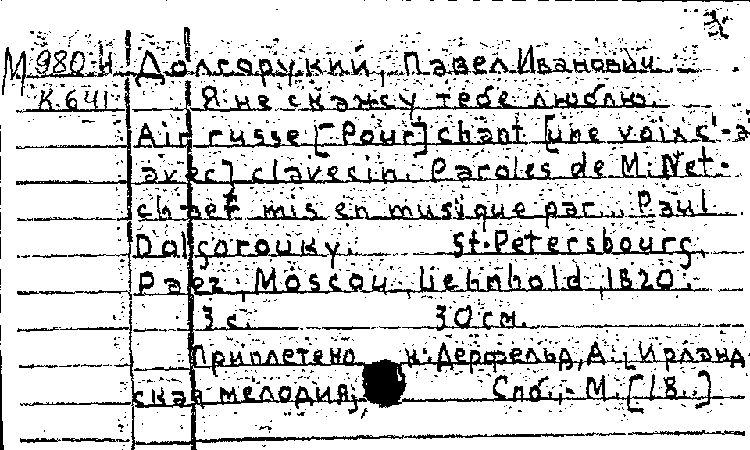 М 980-И Долгорукий, Павел Иванович
К.641 Я не скажсу тебе люблю.
Air russe [Pour] chant [une voix
avec] clavecin. Paroles de M. Net-
chaef mis en musique par... Paul
Dolgorouky. St.-Petersbourg,
Paez; Moscou, Liehnhold, 1820.
3 с. 30 см.
Приплетено к: Дерфельд, А., Ирланд
ская мелодия, Спб.,-М. [18..]